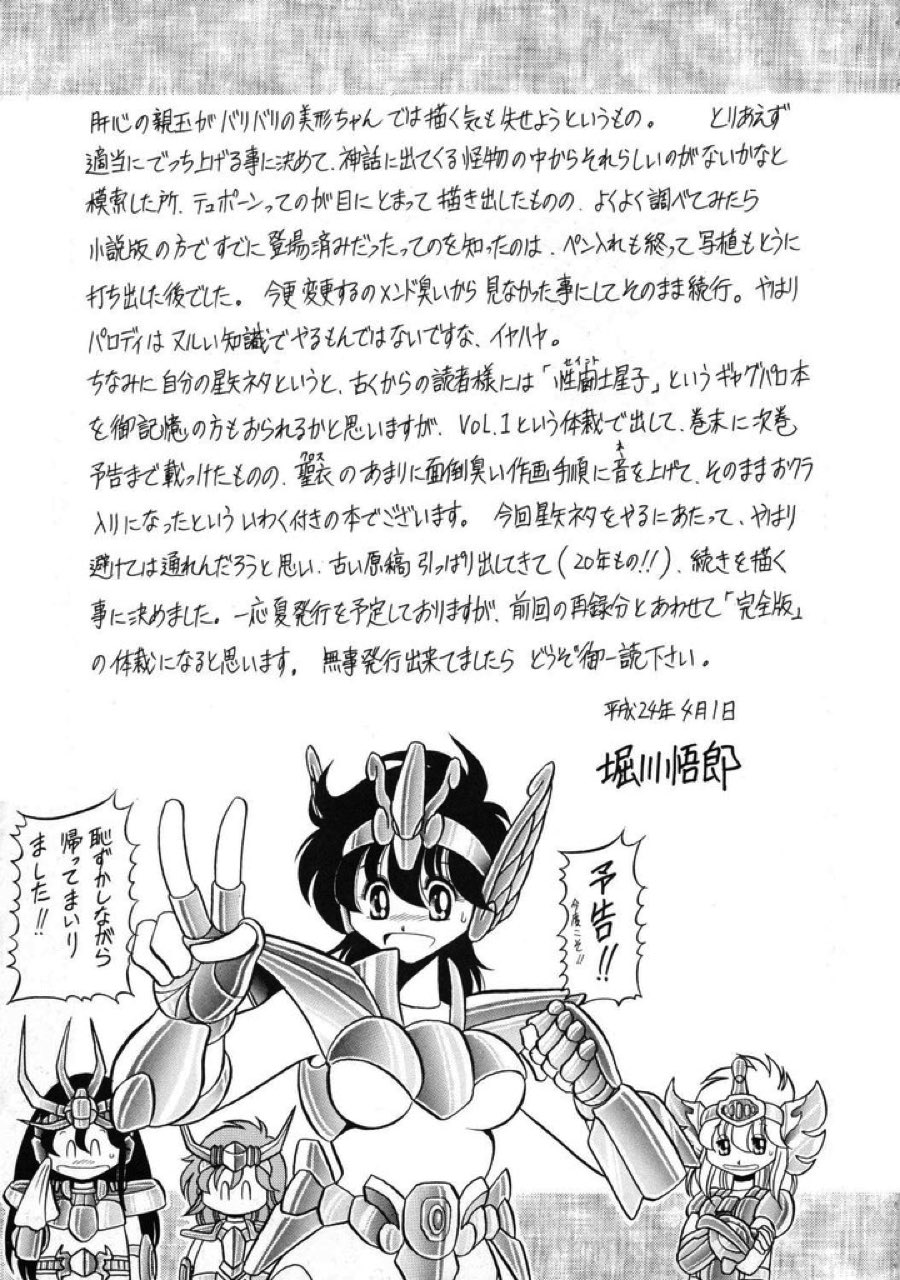 肝心の親玉がバリバリの美形ちゃんでは描く気も失せようというもの。　とりあえず
適当にでっち上げる事に決めて、神話に出てくる怪物の中からそれらしいのがないかなと
模索した所、テュポーンってのが目にとまって描き出したものの、よくよく調べてみたら
小説版の方ですでに登場済みだったってのを知ったのは、ペン入れも終って写植もとうに
打ち出した後でした。　今更変更するのメンド臭いから見なかった事にしてそのまま続行。やはり
パロディはヌルい知識でやるもんではないですな、イヤハヤ。
ちなみに自分の星矢ネタというと、古くからの読者様には「性闘士星子」というギャグパロ本
セイント
を御記憶の方もおられるかと思いますが、Vol.1という体裁で出して、巻末に次巻
予告まで載っけたものの、聖衣のあまりに面倒臭い作画手順に音を上げて、そのままおクラ
クロス
ネ
入りになったといういわく付きの本でございます。　今回星矢ネタをやるにあたって、やはり
避けては通れんだろうと思い、古い原稿引っぱり出してきて(20年もの!!)、続きを描く
事に決めました。一応夏発行を予定しておりますが、前回の再録分とあわせて「完全版」
の体裁になると思います。　無事発行出来てましたら どうぞ御一読下さい。
平成24年4月1日
堀川悟郎
予告!!
今度こそ!!
恥ずかしながら
帰ってまいり
ました!!